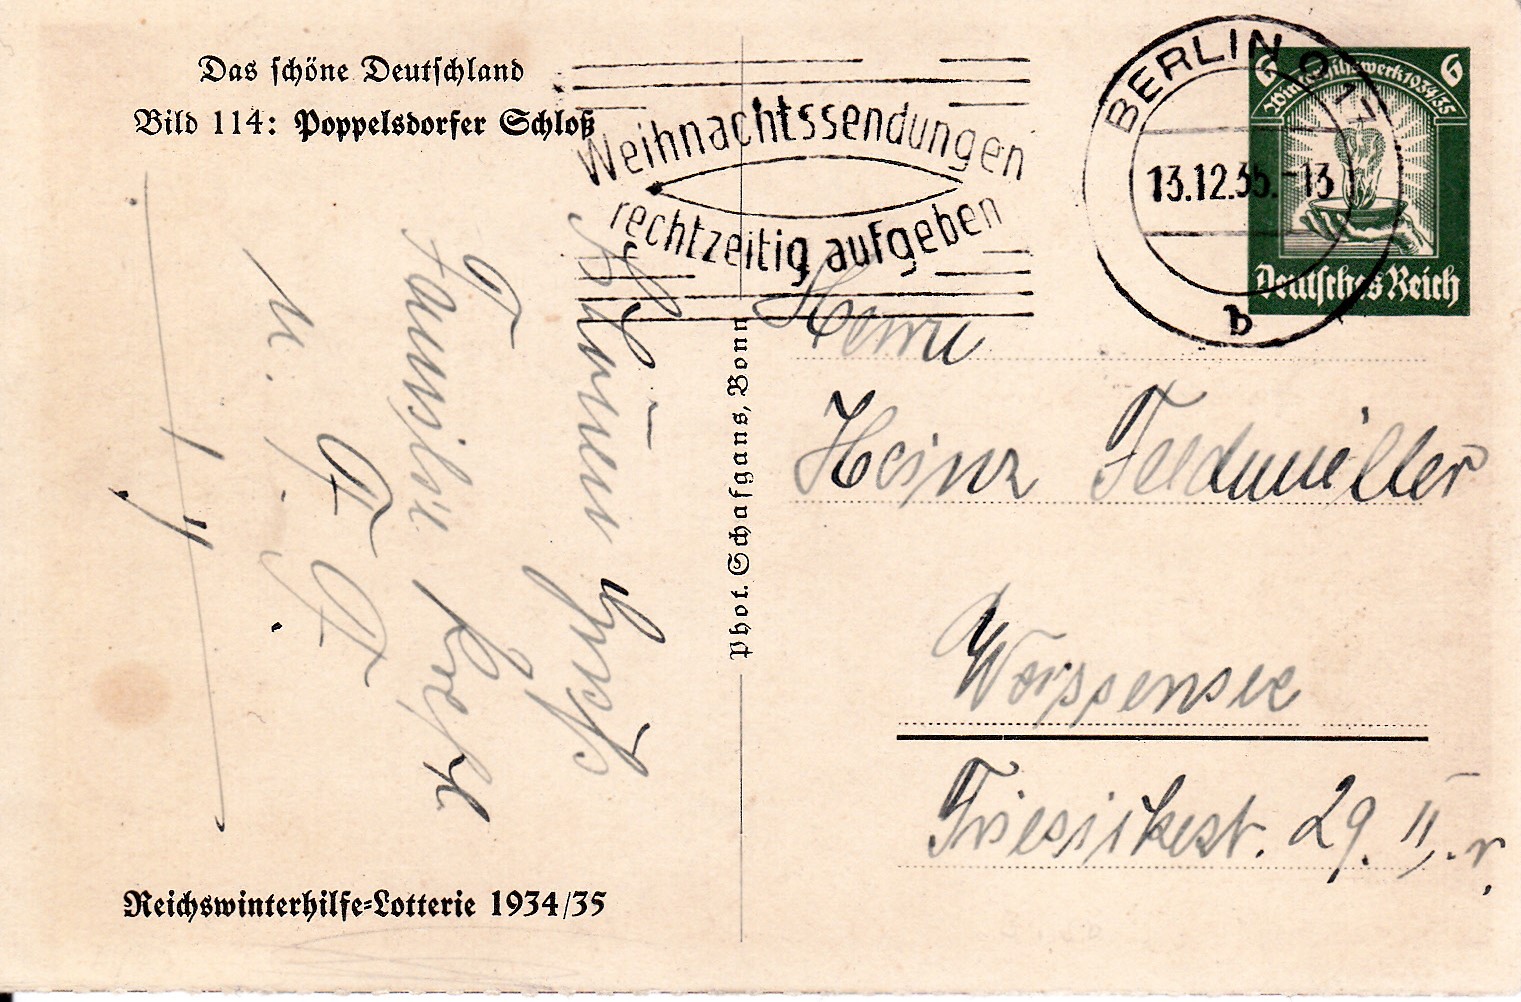 Das schöne Deutschland
Bild 114: Poppelsdorfer Schloß
Weihnachtssendungen
rechtzeitig aufgeben
BERLIN O 17
13.12.35.-13
b
6 6
Winterhilfswerk 1934/35
Deutsches Reich
Phot. Schafgans, Bonn
Herrn
Heinz Feldmüller
Weissensee
Friesickest. 29. II. r.
Familie
u.
Reichswinterhilfe-Lotterie 1934/35